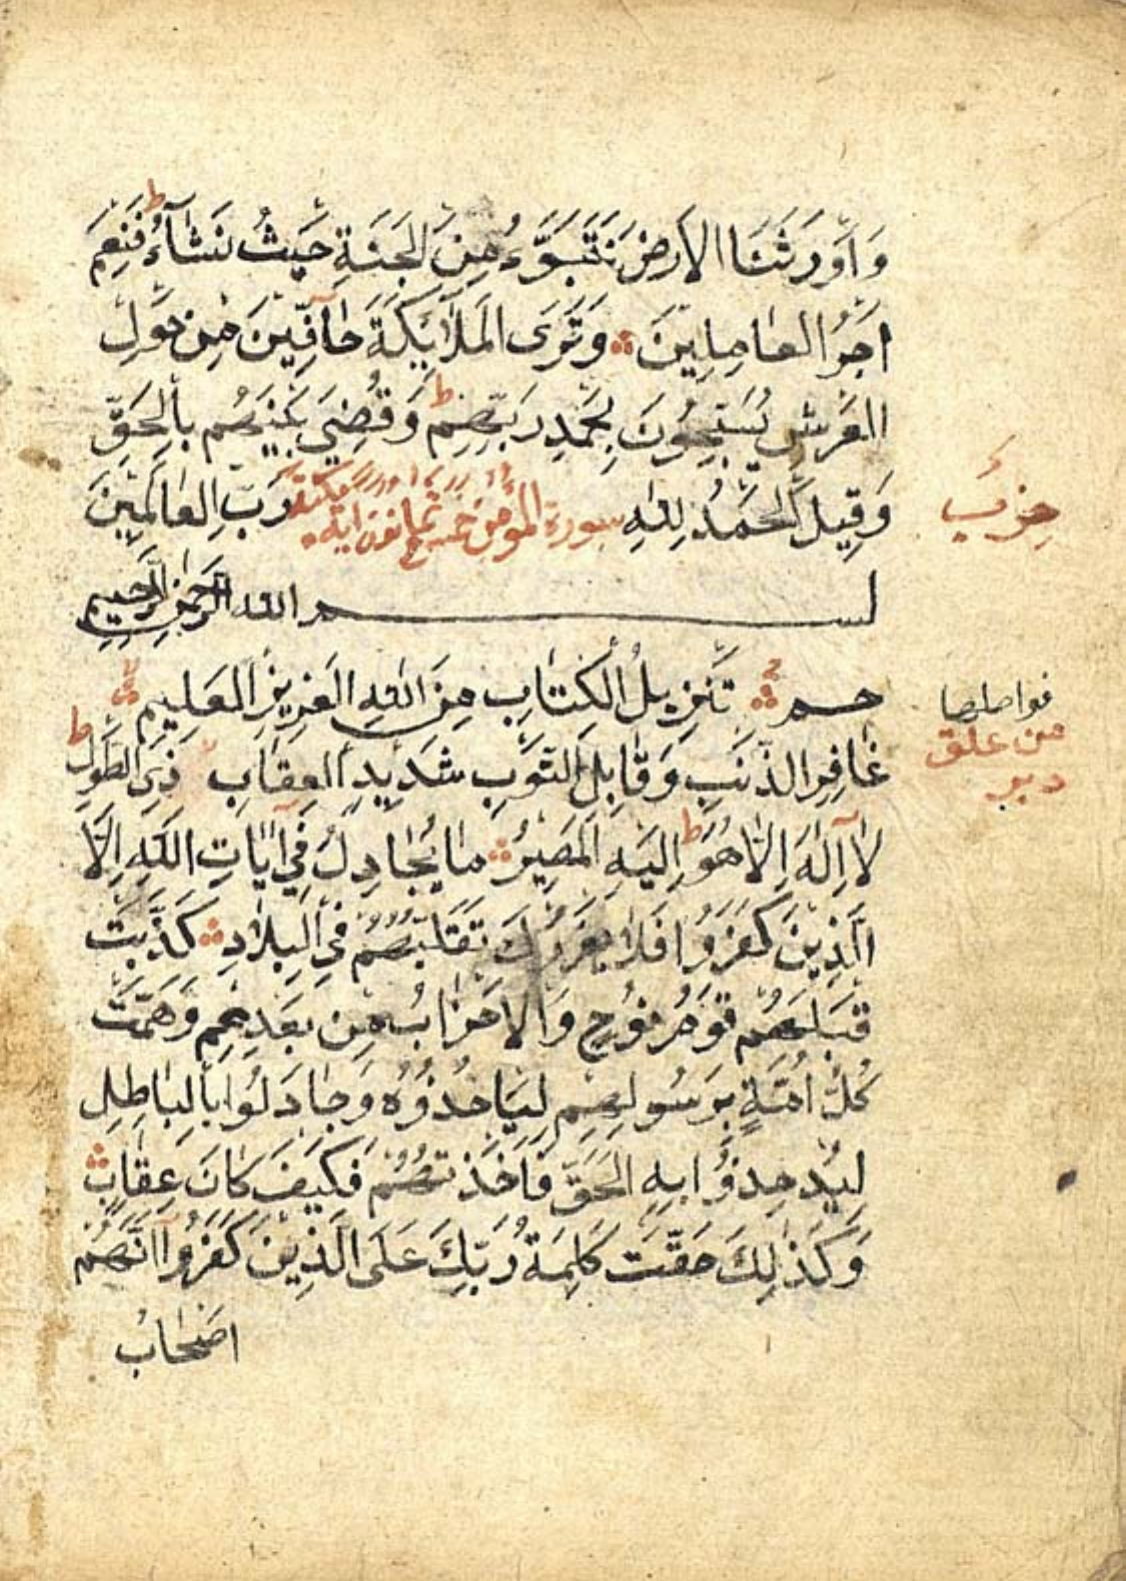 وَاَوْرَثَنَا الْاَرْضَ نَتَبَوَّءُ مِنَ الْجَنَّةِ حَيْثُ نَشَآءُ ط فَنِعْمَ
اَجْرُ الْعَامِلِينَ ۞ وَتَرَى الْمَلَائِكَةَ حَآفِّينَ مِنْ حَوْلِ
الْعَرْشِ يُسَبِّحُونَ بِحَمْدِ رَبِّهِمْ ط وَقُضِيَ بَيْنَهُمْ بِالْحَقِّ
وَقِيلَ الْحَمْدُ لِلّٰهِ رَبِّ الْعَالَمِينَ
سورة المؤمن خمس ثمانون اية مكية
حزب
بسم الله الرحمن الرحيم
حم ۞ تَنْزِيلُ الْكِتَابِ مِنَ اللّٰهِ الْعَزِيزِ الْعَلِيمِ
فواصلها
من علق
دبر
غَافِرِ الذَّنْبِ وَقَابِلِ التَّوْبِ شَدِيدِ الْعِقَابِ ذِي الطَّوْلِ ط
لَآ اِلٰهَ اِلَّا هُوَ ط اِلَيْهِ الْمَصِيرُ ۞ مَا يُجَادِلُ فِي اٰيَاتِ اللّٰهِ اِلَّا
الَّذِينَ كَفَرُوا فَلَا يَغْرُرْكَ تَقَلُّبُهُمْ فِي الْبِلَادِ ۞ كَذَّبَتْ
قَبْلَهُمْ قَوْمُ نُوحٍ وَالْاَحْزَابُ مِنْ بَعْدِهِمْ وَهَمَّتْ
كُلُّ اُمَّةٍ بِرَسُولِهِمْ لِيَاْخُذُوهُ وَجَادَلُوا بِالْبَاطِلِ
لِيُدْحِضُوا بِهِ الْحَقَّ فَاَخَذْتُهُمْ فَكَيْفَ كَانَ عِقَابِ ۞
وَكَذٰلِكَ حَقَّتْ كَلِمَةُ رَبِّكَ عَلَى الَّذِينَ كَفَرُوا اَنَّهُمْ
اَصْحَابُ